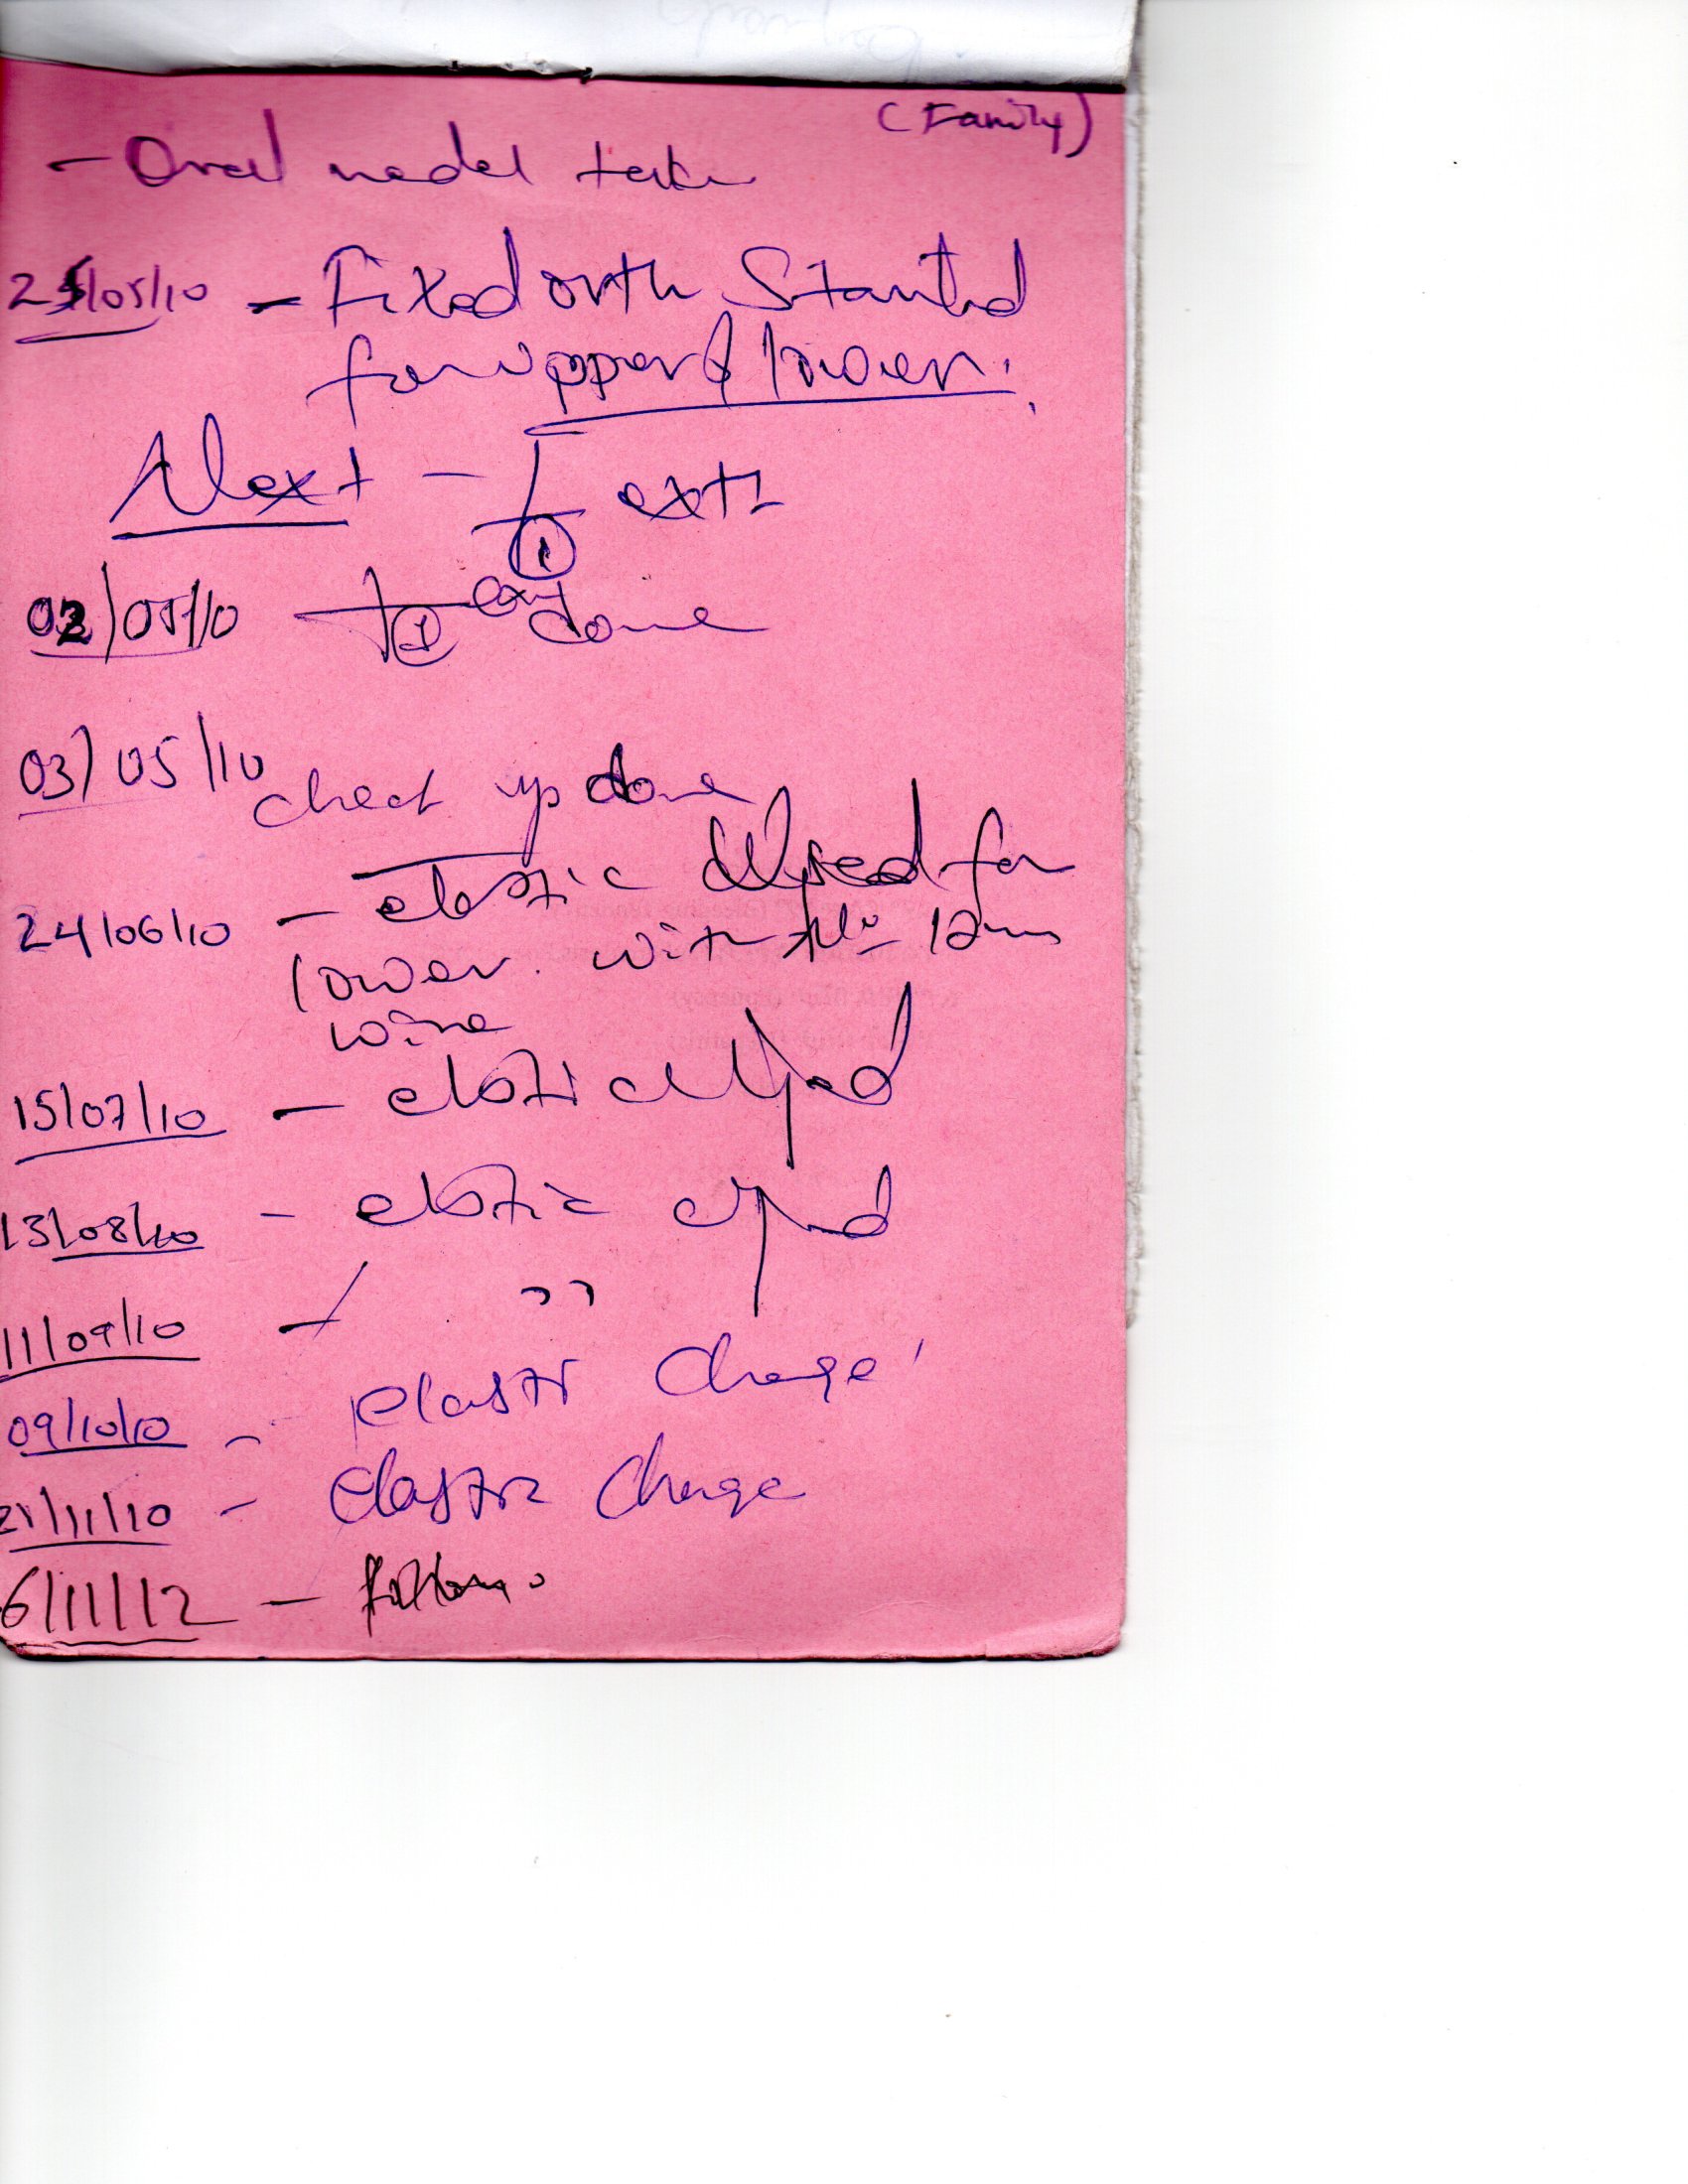 (Family)
- Oral model take
25/05/10 - Fixed orth Started
for upper & lower.
Next - 1 extr
02/05/10 1 ext done
03/05/10 check up done
24/06/10 - elastic for
lower. with 12
wire
15/07/10 - elastic
13/08/10 - elastic
11/09/10 - ''
09/10/10 - elastic change
21/11/10 - elastic change
6/11/12 -